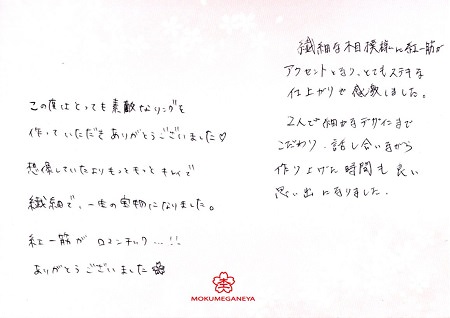 この度はとっても素敵なリングを
作っていただきありがとうございました♡
想像していたよりもっともっときれいで
繊細で、一生の宝物になりました。
紅一筋がロマンチック…!!
ありがとうございました
繊細な相模様に紅一筋が
アクセントとなり、とてもステキな
仕上がりで感激しました。
2人で細かなデザインまで
こだわり、話し合いながら
作り上げた時間も良い
思い出になりました。
MOKUMEGANEYA